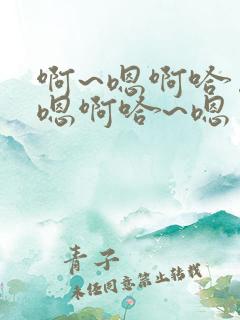 啊~嗯啊哈
嗯啊哈~嗯
青子
未经同意禁止转载